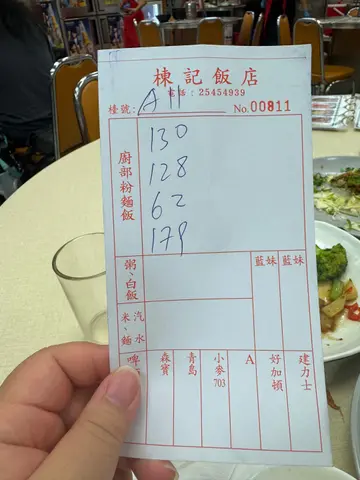 棟記飯店
電話：25454939
檯號： A 11 No.00811
廚部粉麵飯
130
128
62
179
粥、白飯
藍妹
藍妹
汽水
米、麵
啤
森寶
青島
小麥703
A
好加頓
建力士